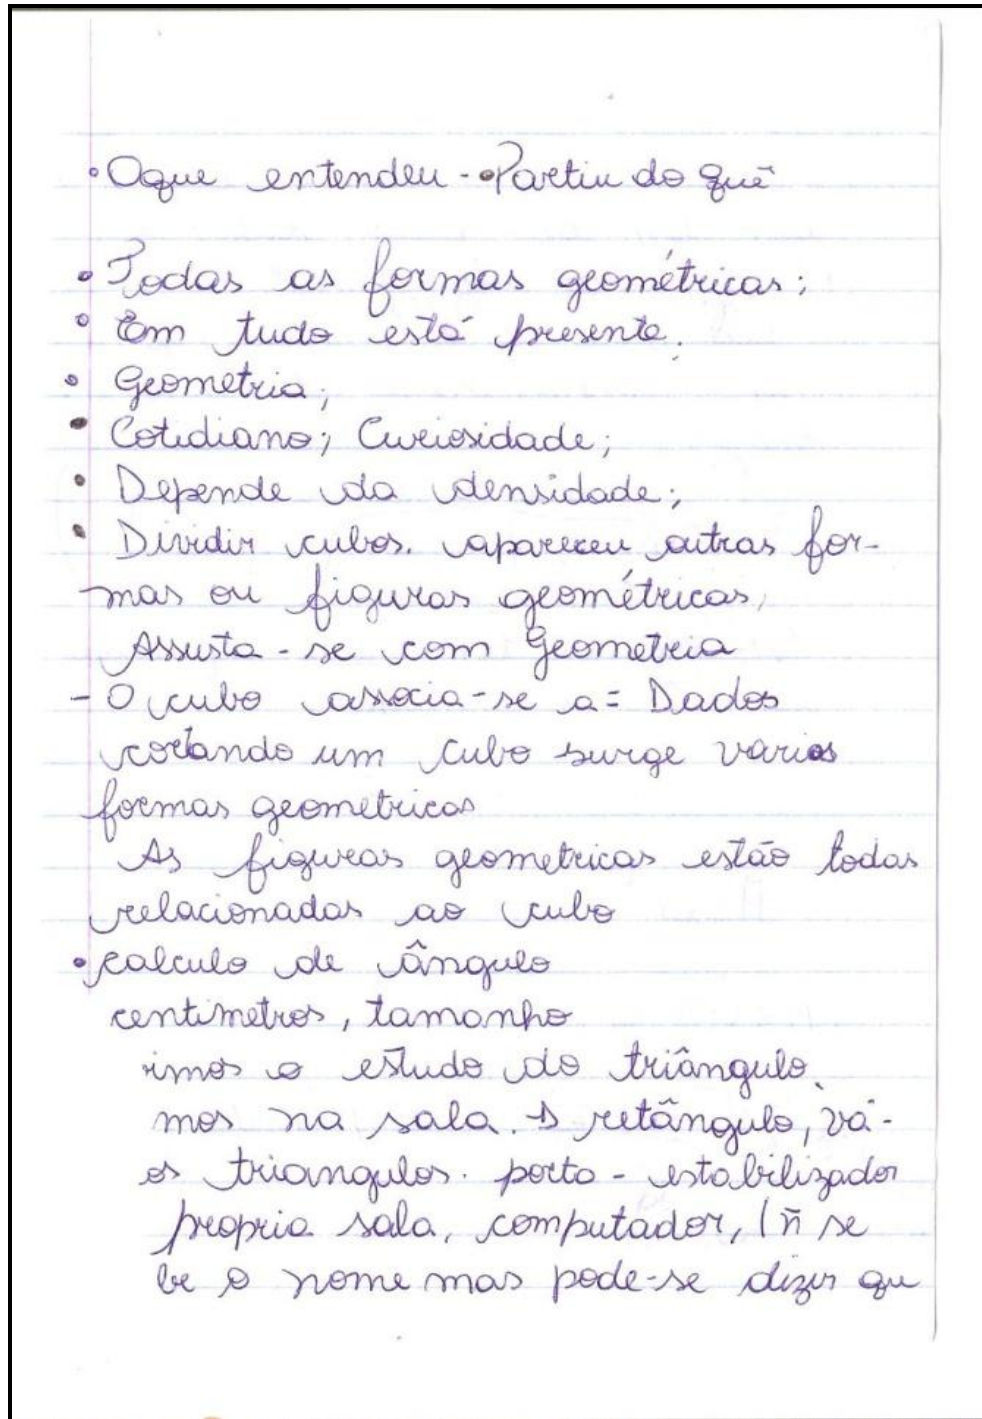 • Oque entendeu - • Partiu do quê
• Todas as formas geométricas;
• Em tudo está presente.
• Geometria;
• Cotidiano; Curiosidade;
• Depende da densidade;
• Dividir cubos. apareceu outras for-
mas ou figuras geométricas,
Assusta-se com Geometria
- O cubo associa-se a = Dados
cortando um cubo surge varias
formas geometricas
As figuras geometricas estão todas
relacionadas ao cubo
• calculo de ângulo
centimetros, tamanho
imos o estudo do triângulo.
mos na sala. retângulo, vá-
os triangulos. porta - estabilizador
propria sala, computador, (ñ se
be o nome mas pode-se dizer qu